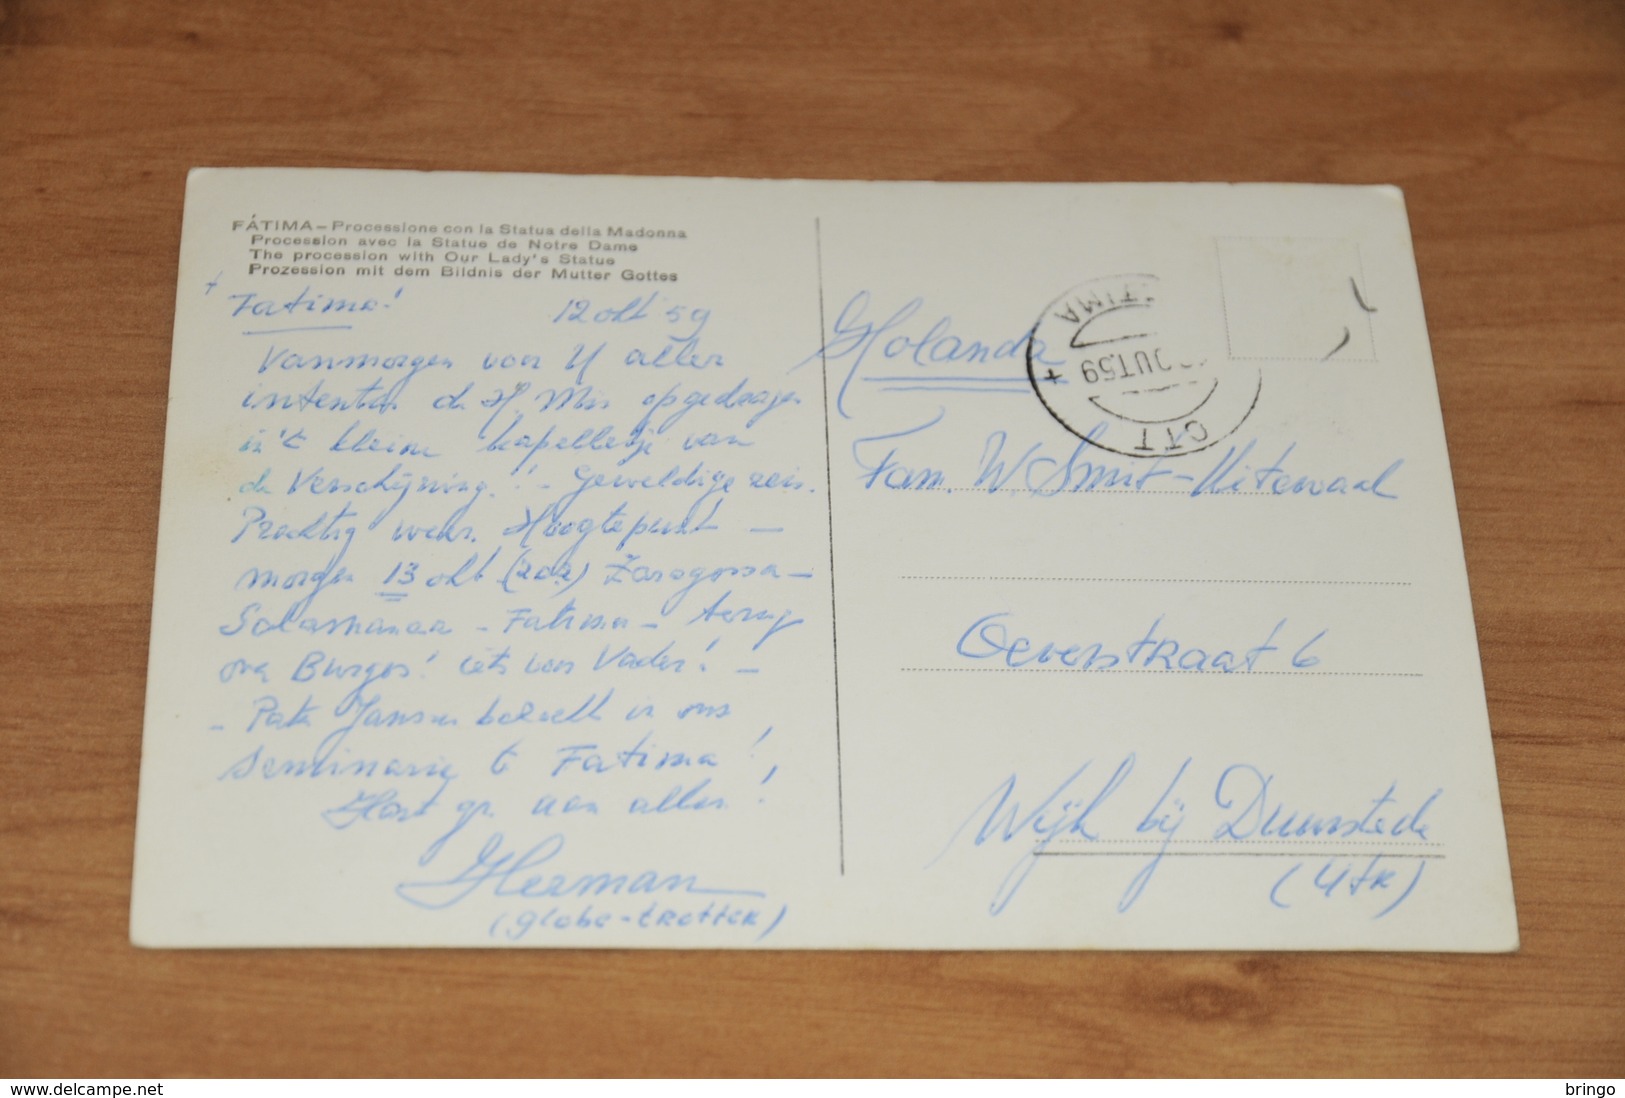 FÁTIMA – Processione con la Statua della Madonna
Procession avec la Statue de Notre Dame
The procession with Our Lady's Statue
Prozession mit dem Bildnis der Mutter Gottes
Fatima! 12 okt 59
Vanmorgen voor U aller
intenties de H. Mis opgedragen
in 't kleine kapelletje van
de Verschijning! - Geweldige reis.
Prachtig weer. Hoogtepunt -
morgen 13 okt Zaragossa -
Salamanca - Fatima - terug
via Burgos! iets voor Vader! -
- Pater Jansen bezoekt in ons
Seminarie te Fatima!
Hart. gr. aan allen!
Herman
(globe-trotter)
Holanda
FATIMA
OUT.59
CTT
Fam. W. Smit-Uitewaal
Oeverstraat 6
Wijk bij Duurstede
(Utr)
www.delcampe.net
bringo